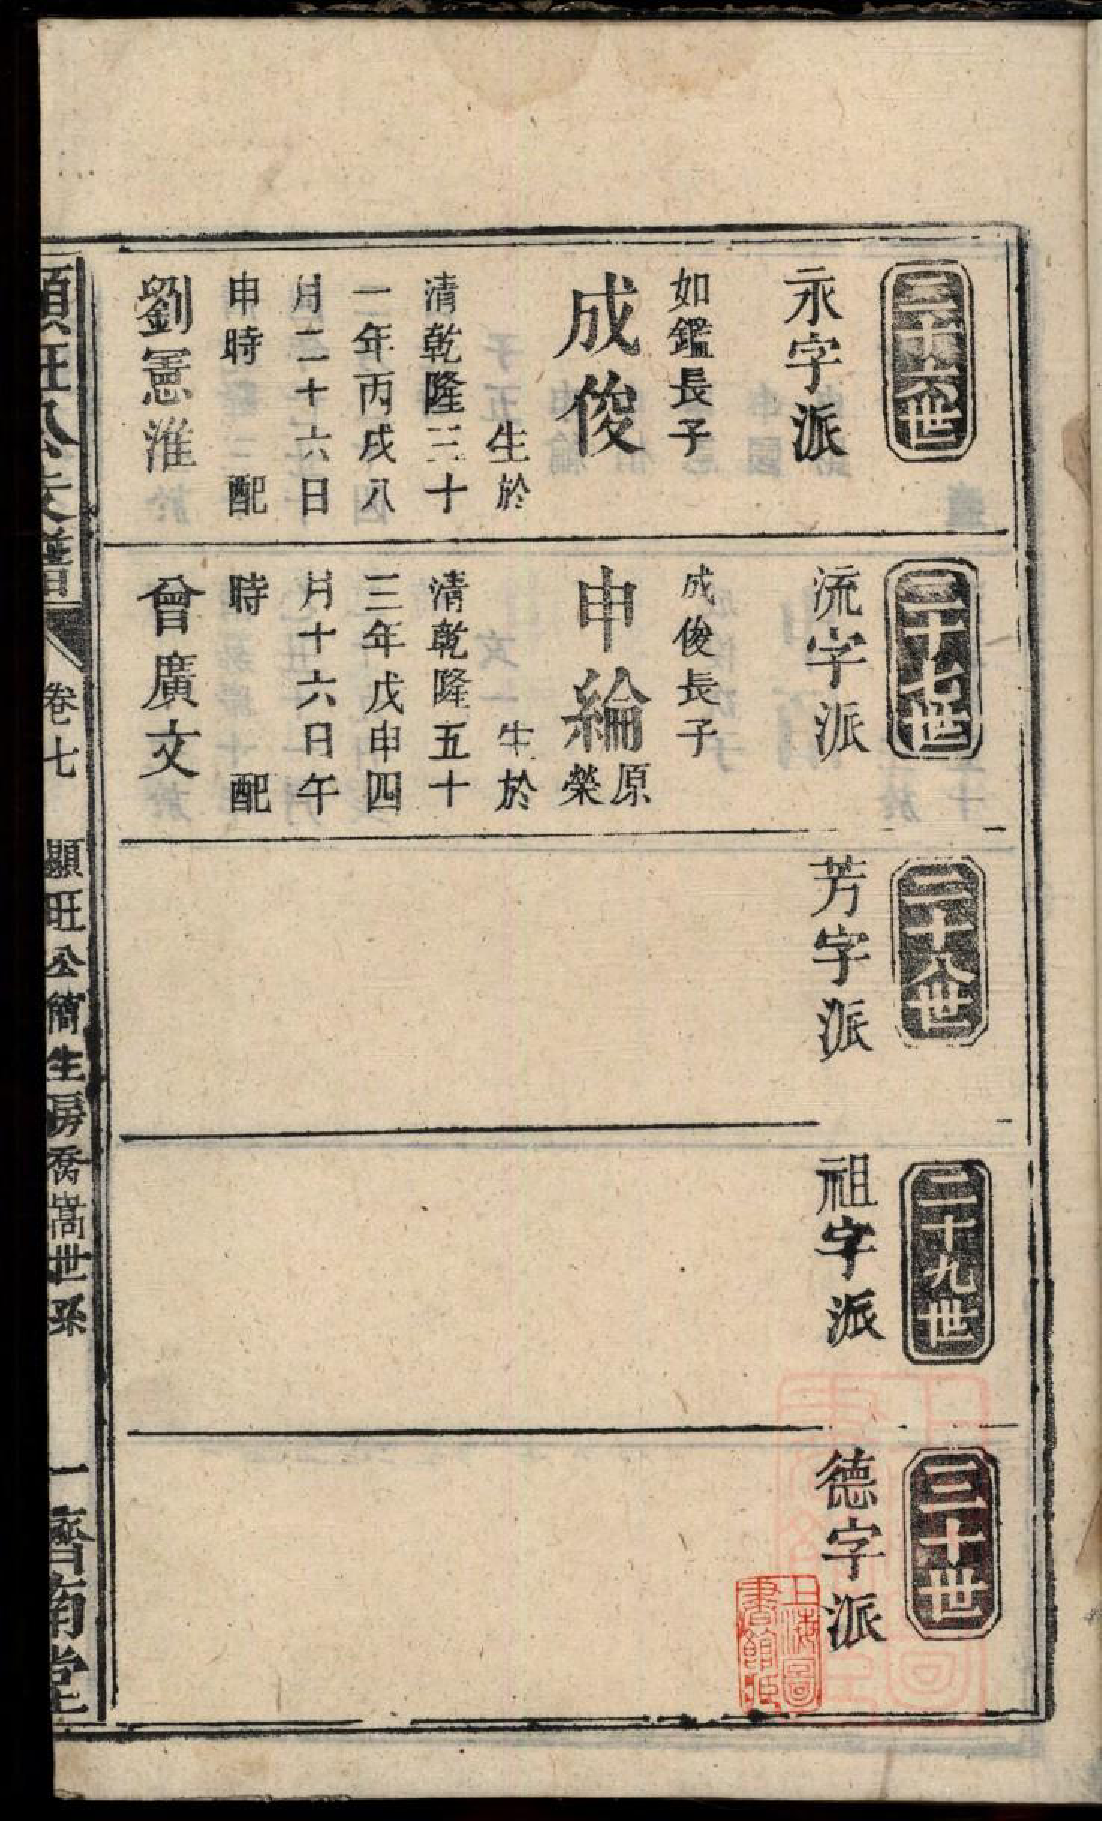 二十六世
永字派
如鑑長子
成俊
生於
清乾隆三十
一年丙戌八
月二十六日
申時 配
劉憲淮
二十七世
流字派
成俊長子
申綸 原榮
生於
清乾隆五十
三年戊申四
月十六日午
時 配
曾廣文
二十八世
芳字派
二十九世
祖字派
三十世
德字派
上海圖
書館臧
顯旺公支譜
卷七
顯旺公簡生房喬嵩世系
一
濟南堂